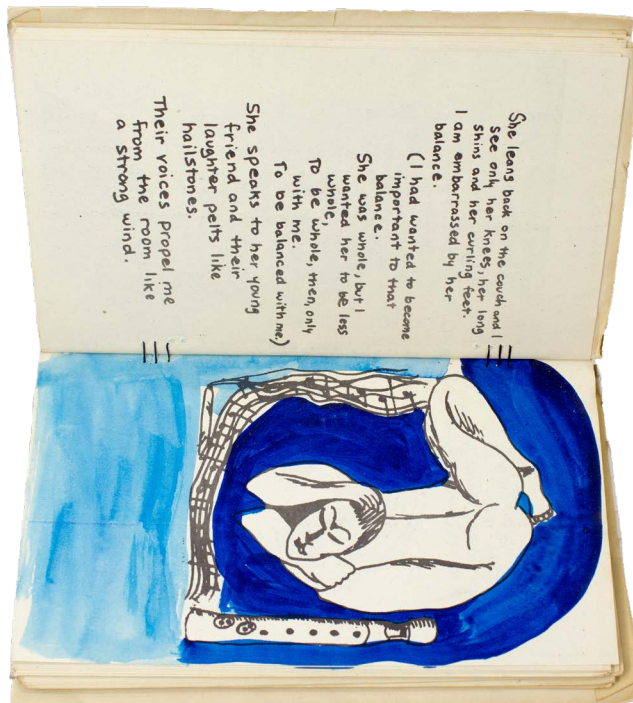 She leans back on the couch and I
see only her knees, her long
shins and her curling feet.
I am embarrassed by her
balance.
(I had wanted to become
important to that
balance.
She was whole, but I
wanted her to be less
whole,
To be whole, then, only
with me.
To be balanced with me.)
She speaks to her young
friend and their
laughter pelts like
hailstones.
Their voices propel me
from the room like
a strong wind.